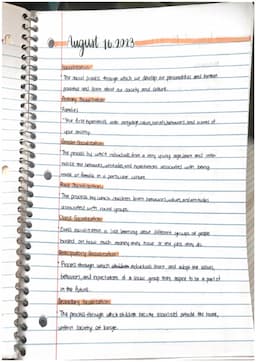 August 16, 2023
Socialization:
The social process through which we develop our personalities and human
potential and learn about our society and culture.
Primary Socialization:
Families
Your first experiences with language, values, beliefs, behaviors, and norms of
your society.
Gender Socialization:
The process by which individuals, from a very young age, learn and
the behaviors, attitudes, and expectations associated with being
male or female in a particular culture.
Race Socialization:
The process by which children learn behaviors, values, and attitudes
associated with racial groups.
Class Socialization:
Class socialization is just learning about different groups of people
based on how much money they have or the jobs they do.
Anticipatory Socialization:
Process through which individuals learn and adopt the values,
behaviors, and expectations of a social group they aspire to be a part of
in the future.
Secondary Socialization:
The process through which children become socialized outside the home,
within society at large.